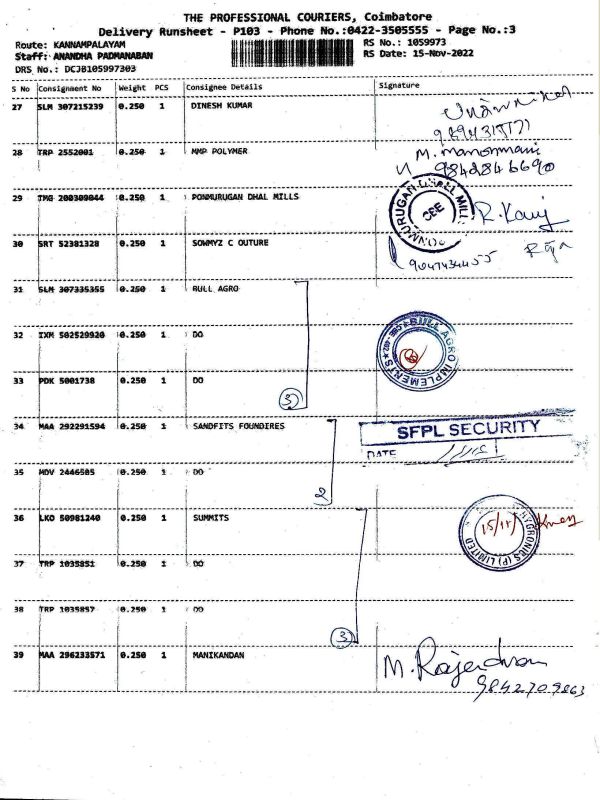 THE PROFESSIONAL COURIERS, Coimbatore
Delivery Runsheet - P103 - Phone No.:0422-3505555 - Page No.:3
Route: KANNAMPALAYAM RS No.: 1059973
Staff: ANANDHA PADMANABAN RS Date: 15-Nov-2022
DRS No.: DCJB105997303
S No Consignment No Weight PCS Consignee Details Signature
27 SLM 307215239 0.250 1 DINESH KUMAR
28 TRP 2552001 0.250 1 MMP POLYMER M. manonmani
9842846690
29 TMG 200309044 0.250 1 PONMURUGAN DHAL MILLS PONMURUGAN DHALL MILL CBE
30 SRT 52381328 0.250 1 SOWMYZ C OUTURE 9047434455 Raja
31 SLM 307335355 0.250 1 BULL AGRO
32 IXM 502529920 0.250 1 DO BULL AGRO IMPLEMENTS
33 PDK 5001738 0.250 1 DO
3
34 MAA 292291594 0.250 1 SANDFITS FOUNDIRES SFPL SECURITY
DATE
35 MDV 2446505 0.250 1 DO
2
36 LKO 50981240 0.250 1 SUMMITS 15/11 HYGRONICS (P) LIMITED
37 TRP 1035851 0.250 1 DO
38 TRP 1035857 0.250 1 DO
3
39 MAA 296233571 0.250 1 MANIKANDAN M. Rajendran
9842709863